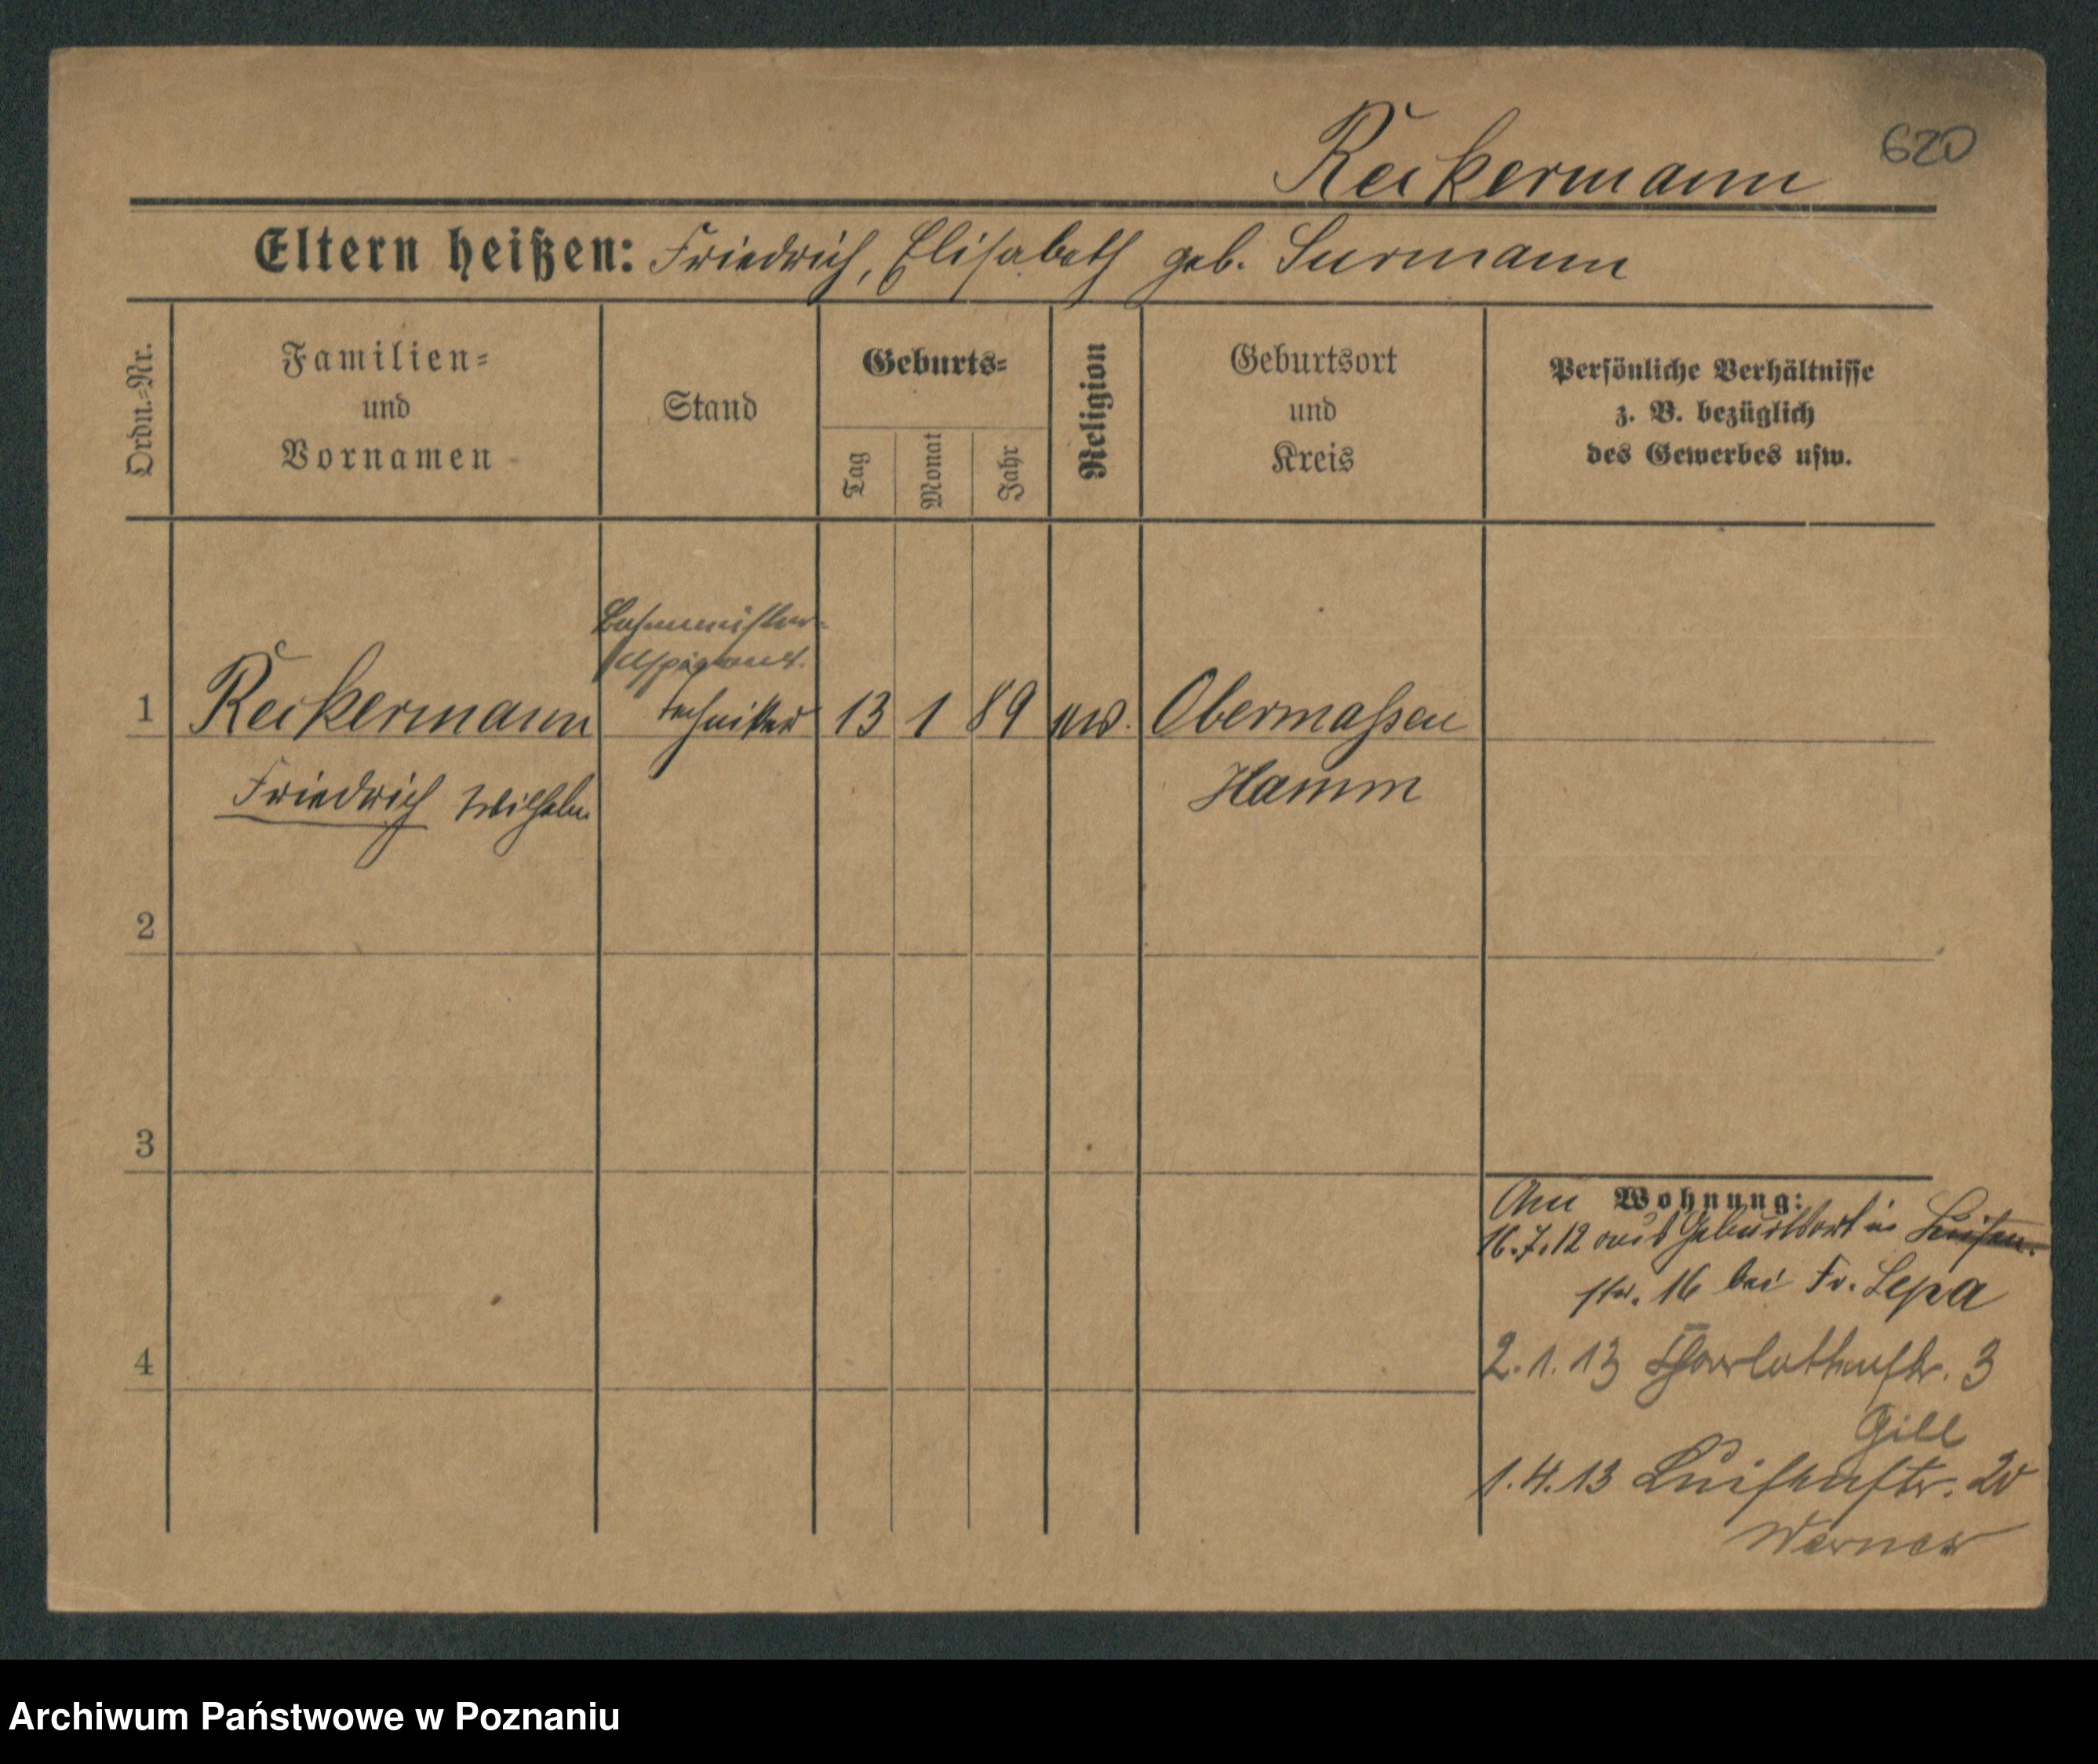 Reckermann
620
Eltern heißen: Friedrich, Elisabeth geb. Surmann
Ordn.-Nr.
Familien-
und
Vornamen
Stand
Geburts-
Tag
Monat
Jahr
Religion
Geburtsort
und
Kreis
Persönliche Verhältnisse
z. B. bezüglich
des Gewerbes usw.
Bahnmeister-
Aspirant.
1 Reckermann Techniker 13 1 89 Obermassen
Friedrich Wilhelm Hamm
2
3
4
Wohnung:
16.7.12 aus Geburtsort in Luisen-
str. 16 bei Fr. Lepa
2.1.13 Charlottenstr. 3
Gill
1.4.13 Luisenstr. 20
Werner
Archiwum Państwowe w Poznaniu